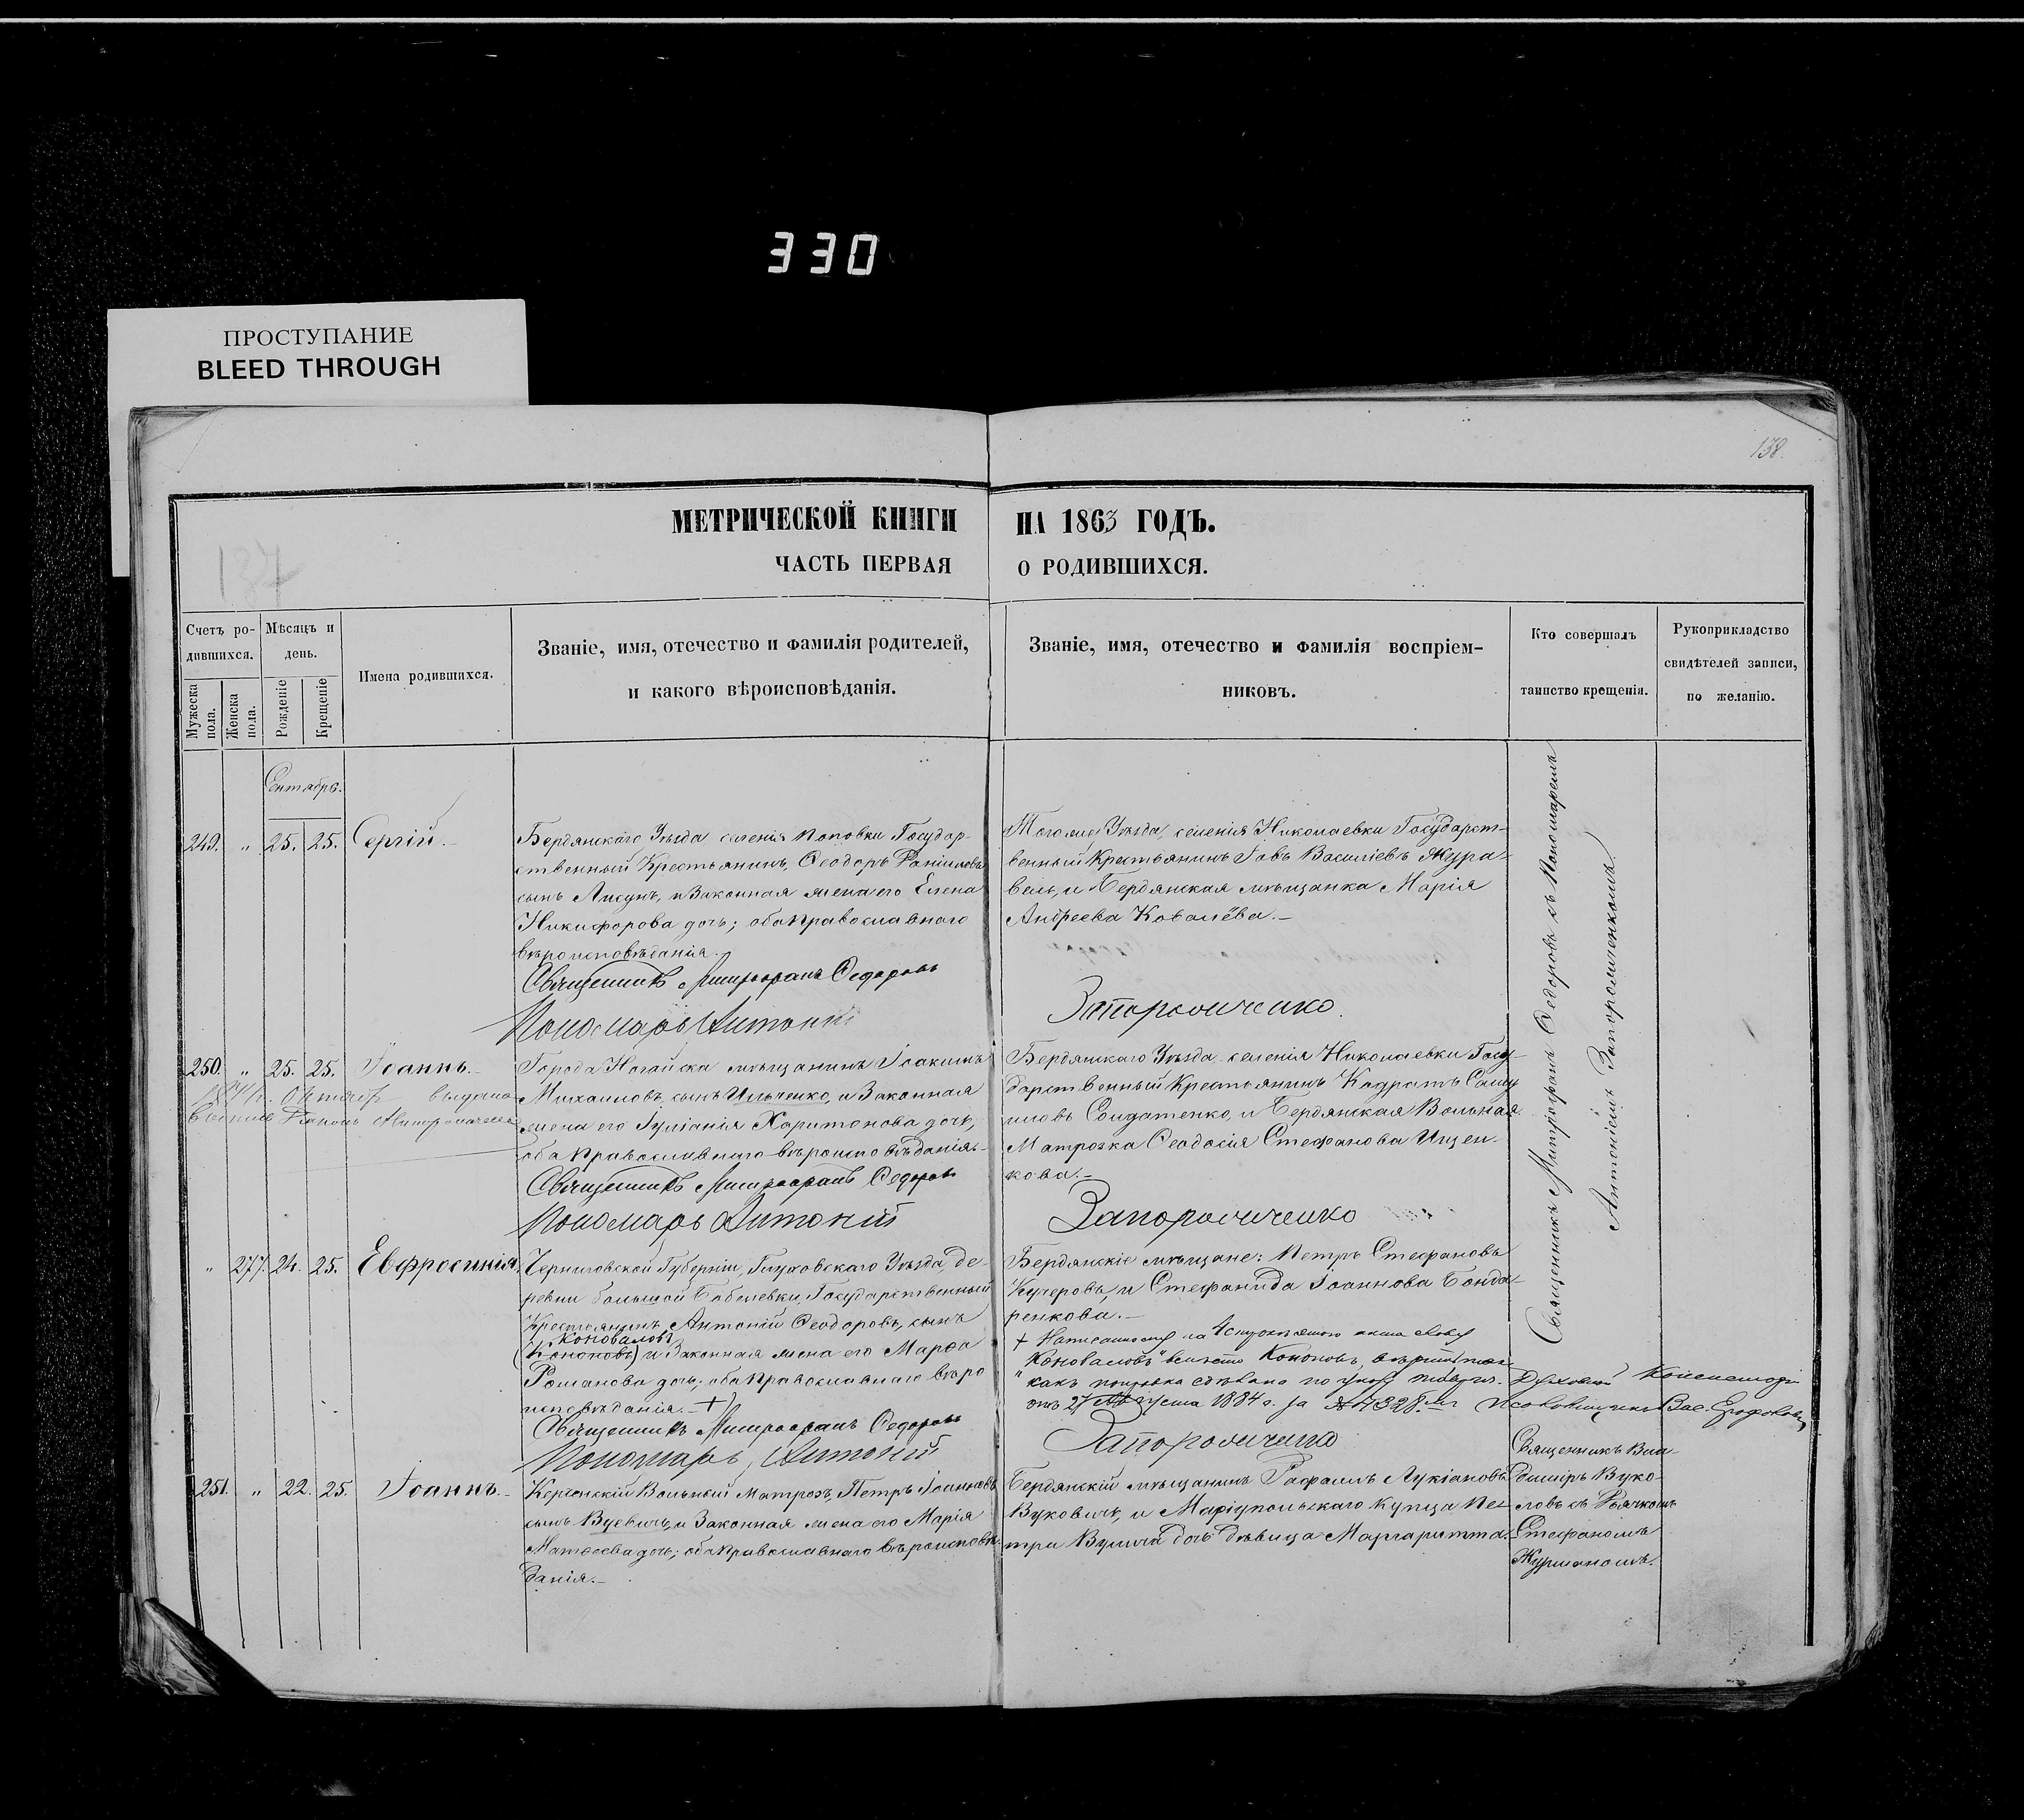 330
ПРОСТУПАНИЕ
BLEED THROUGH
138.
137
МЕТРИЧЕСКОЙ КНИГИ НА 1863 ГОДЪ.
ЧАСТЬ ПЕРВАЯ О РОДИВШИХСЯ.
Счетъ ро-
дившихся.
Мужеска
пола.
Женска
пола.
Мѣсяцъ и
день.
Рожденіе
Крещеніе
Имена родившихся.
Званіе, имя, отечество и фамилія родителей,
и какого вѣроисповѣданія.
Званіе, имя, отечество и фамилія воспріем-
никовъ.
Кто совершалъ
таинство крещенія.
Рукоприкладство
свидѣтелей записи,
по желанію.
Сентабрь.
249. " 25. 25. Сергій.
Бердянскаго Уѣзда селенія Поповки Государ-
ственный Крестьянинъ, Ѳеодоръ
сынъ Лисунъ, и Законная жена его Елена
Никифорова дочь; оба Православнаго
вѣроисповѣданія.
Священникъ Митрофанъ Ѳедоровъ
Пономарь Антоній
Тогоже Уѣзда, селенія Николаевки Государст-
венный Крестьянинъ Іовъ Василіевъ Жура-
вель, и Бердянская мѣщанка Марія
Андреева Ковалёва.
Запорожченко.
250. " 25. 25. Іоаннъ.
Города Ногайска мѣщанинъ Іоакимъ
Михаиловъ сынъ Ильченко, и Законная
жена его Іуліанія Харитонова дочь,
оба Православнаго вѣроисповѣданія.
Священникъ Митрофанъ Ѳедоровъ
Пономарь Антоній
Бердянскаго Уѣзда селенія Николаевки Госу-
дарственный Крестьянинъ Кодратъ
Солдатенко, и Бердянская Вольная
Матрозка Ѳеодосія Стефанова Ищен-
кова.
Запорожченко
" 277. 24. 25. Евфросинія.
Черниговской Губерніи, Глуховскаго Уѣзда, де-
ревни большой Бобылевки, Государственный
Крестьянинъ, Антоній Ѳеодоровъ, сынъ
Коноваловъ
(Кононовъ) и Законная жена его Марѳа
Романова дочь, оба Православнаго вѣро
исповѣданія. +
Священникъ Митрофанъ Ѳедоровъ
Пономарь Антоній
Бердянскіе мѣщане: Петръ Стефановъ
Кучеровъ, и Стефанида Іоаннова Бонда-
ренкова.
+ Написанному на
"Коноваловъ" вмѣсто Кононовъ, вѣрить
какъ поправка сдѣлана по указу Духовной Консисторіи
отъ 27 Августа 1884 г. за № 4328
Запорожченко
251. " 22. 25. Іоаннъ.
Керченскій Вольный Матрозъ, Петръ Іоанновъ
сынъ Вуевичъ, и Законная жена его Марія
Матѳеева дочь; оба Православнаго вѣроисповѣ-
данія.
Бердянскій мѣщанинъ Рафаилъ Лукіановъ
Вуковичъ, и Маріупольскаго Купца Пе-
тра дочь дѣвица Маргаритта.
Священникъ Митрофанъ Ѳедоровъ съ Пономаремъ
Антоніемъ Запорожченкомъ.
Священникъ Вла-
диміръ Вуко-
ловъ съ Дьячкомъ
Стефаномъ